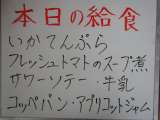 本日の給食
いかてんぷら
フレッシュトマトのスープ煮
サワーソテー・牛乳
コッペパン・アプリコットジャム